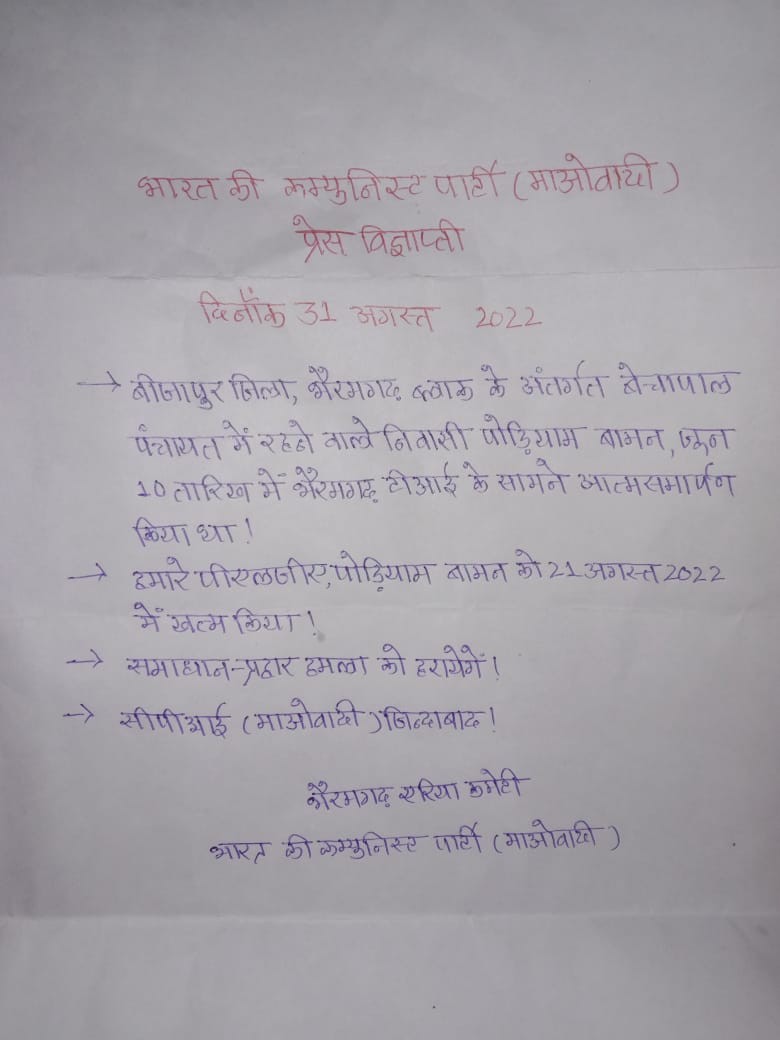 भारत की कम्युनिस्ट पार्टी (माओवादी)
प्रेस विज्ञाप्ती
दिनाँक 31 अगस्त 2022
→ बीजापुर जिला, भैरमगढ़ ब्लाक के अंतर्गत बेचापाल
पंचायत में रहने वाले निवासी पोड़ियाम बामन, जून
10 तारिख में भैरमगढ़ टीआई के सामने आत्मसमार्पण
किया था!
→ हमारे पीएलजीए, पोड़ियाम बामन को 21 अगस्त 2022
में खत्म किया!
→ समाधान-प्रहार हमला को हरायेगें!
→ सीपीआई (माओवादी) जिन्दाबाद!
भैरमगढ़ एरिया कमेटी
भारत की कम्युनिस्ट पार्टी (माओवादी)